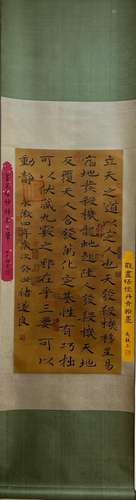 立天之道以定人也天發殺機移星易
宿地發殺機龍蛇起陸人發殺機天地
反覆天人合發萬化定基性有巧拙
可以伏藏九竅之邪在乎三要可以
動靜 永徽四年 褚遂良